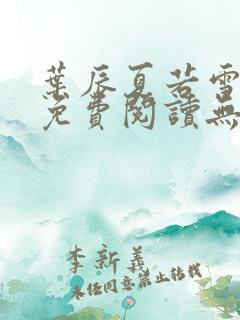 葉辰夏若雪
免費閱讀無
李新義
未经同意禁止转载